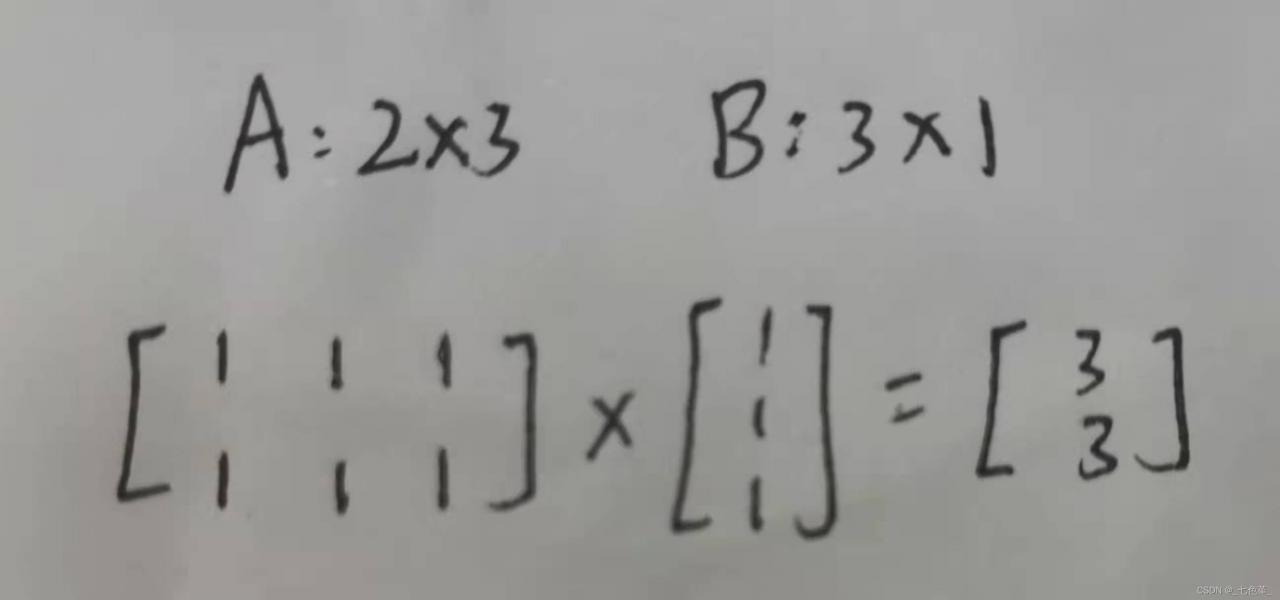 A: 2×3 B: 3×1
[ 1 1 1 ] × [ 1 ] = [ 3 ]
[ 1 1 1 ] [ 1 ] [ 3 ]
[ 1 ]
CSDN @_七色革_